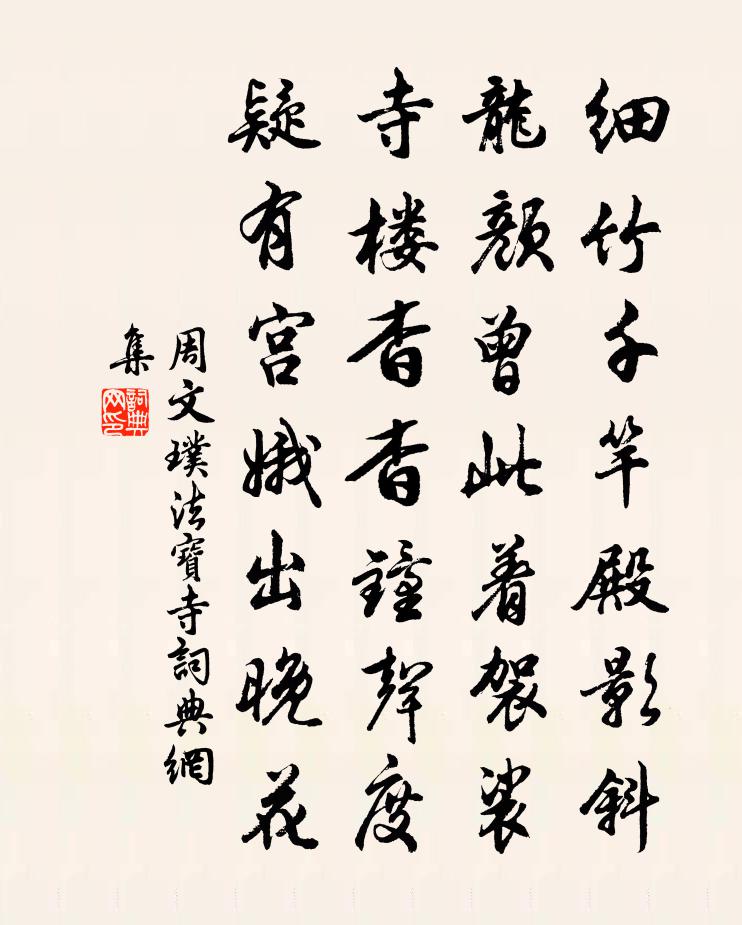 细竹千竿殿影斜
龍颜曾此着袈裟
寺楼杳杳鐘聲度
疑有宫娥出晚花
周文璞法寶寺詞典網
集
詞典
网印